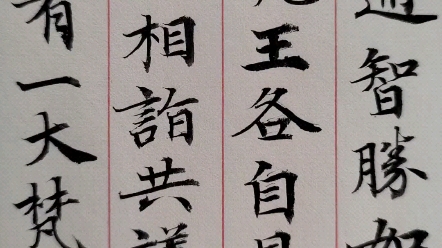 通智勝如
王各自見
相詣共議
有一大梵